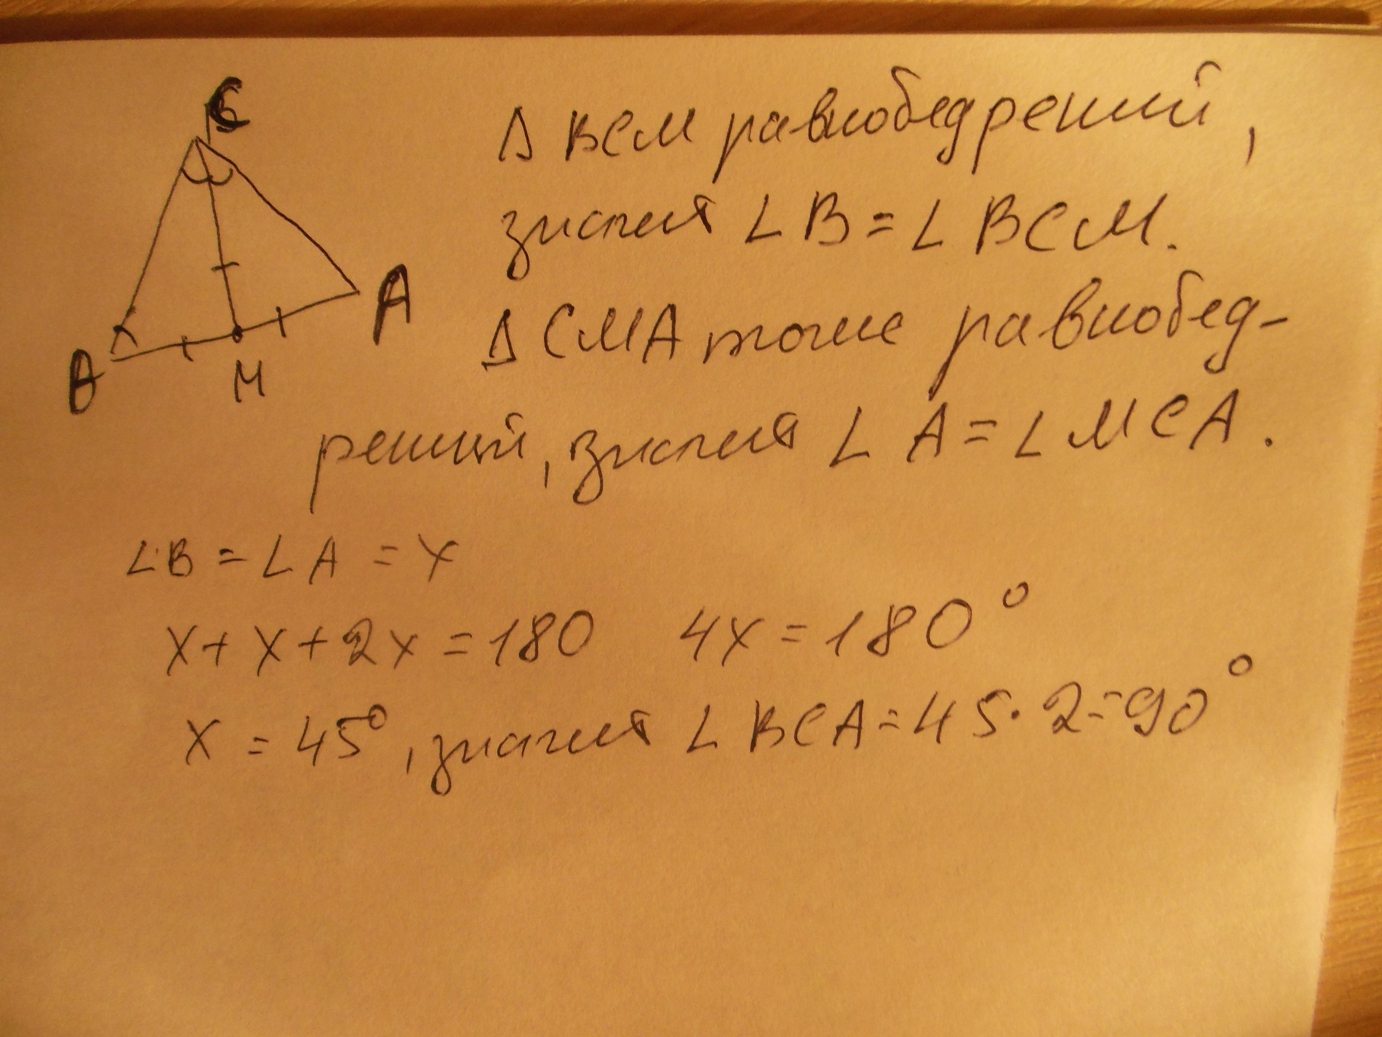 C
Δ ВСМ равнобедрений,
значит ∠ B = ∠ BCM.
A
Δ СМА тоже равнобед-
B
M
рений, значит ∠ A = ∠ MCA.
∠B = ∠A = x
x + x + 2x = 180 4x = 180°
x = 45°, значит ∠ BCA = 45 · 2 = 90°